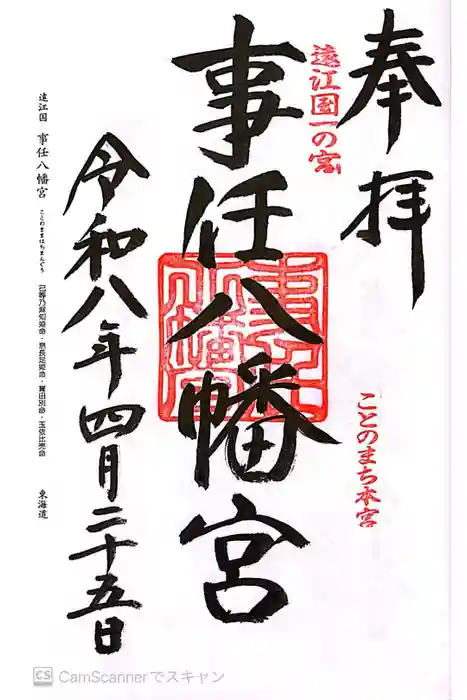 奉拝
遠江国一の宮
ことのまち本宮
事任八幡宮
令和八年四月二十五日
遠江国 事任八幡宮 ことのままはちまんぐう 己等乃麻知姫命・息長足姫命・譽田別命・玉依比売命 東海道
CS CamScannerでスキャン